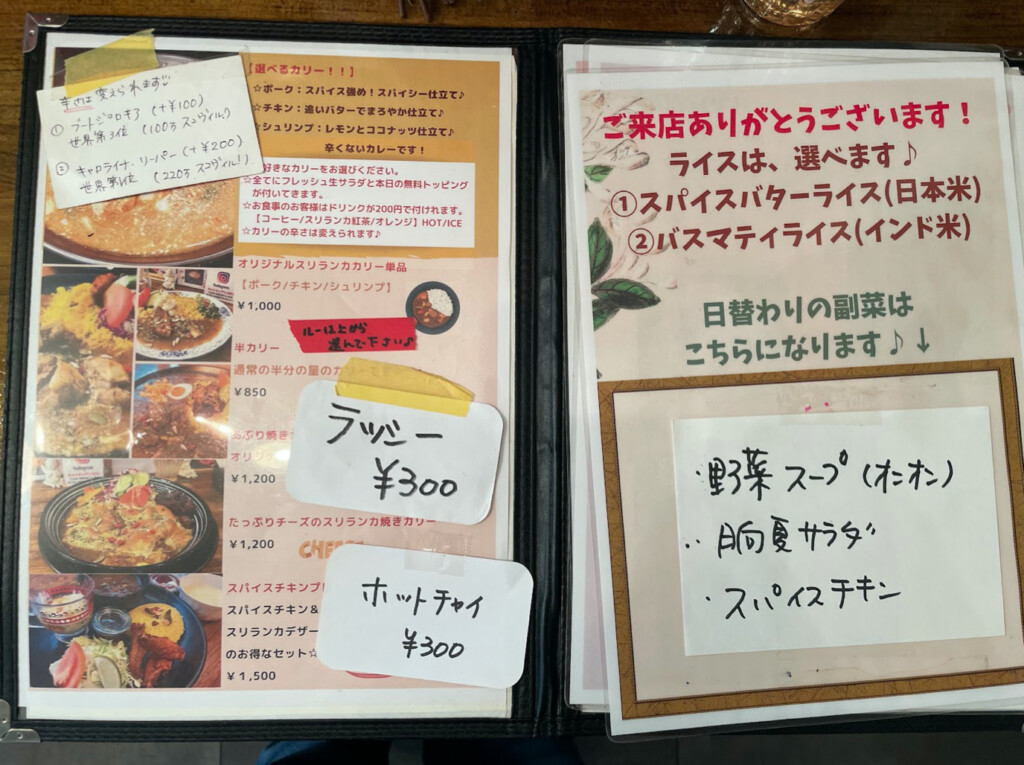 辛さは変えられます
① ブートジョロキア (+¥100)
世界第3位 (100万スコヴィル)
② キャロライナ・リーパー (+¥200)
世界第1位 (220万スコヴィル!)
【選べるカリー！！】
☆ポーク：スパイス強め！スパイシー仕立て♪
☆チキン：追いバターでまろやか仕立て♪
☆シュリンプ：レモンとココナッツ仕立て♪
辛くないカレーです！
好きなカリーをお選びください。
☆全てにフレッシュ生サラダと本日の無料トッピング
が付いてきます。
☆お食事のお客様はドリンクが200円で付けれます。
【コーヒー/スリランカ紅茶/オレンジ】HOT/ICE
☆カリーの辛さは変えられます♪
オリジナルスリランカカリー単品
【ポーク/チキン/シュリンプ】
¥1,000
ルーは上から
選んで下さい♪
半カリー
通常の半分の量のカリー
¥850
ラッシー
¥300
ぶり焼き
オリジ
¥1,200
たっぷりチーズのスリランカ焼きカリー
¥1,200
ホットチャイ
¥300
スパイスチキンプ
スパイスチキン＆
スリランカデザー
のお得なセット☆
¥1,500
ご来店ありがとうございます！
ライスは、選べます♪
①スパイスバターライス(日本米)
②バスマティライス(インド米)
日替わりの副菜は
こちらになります♪↓
・野菜スープ(オニオン)
・胡夏サラダ
・スパイスチキン